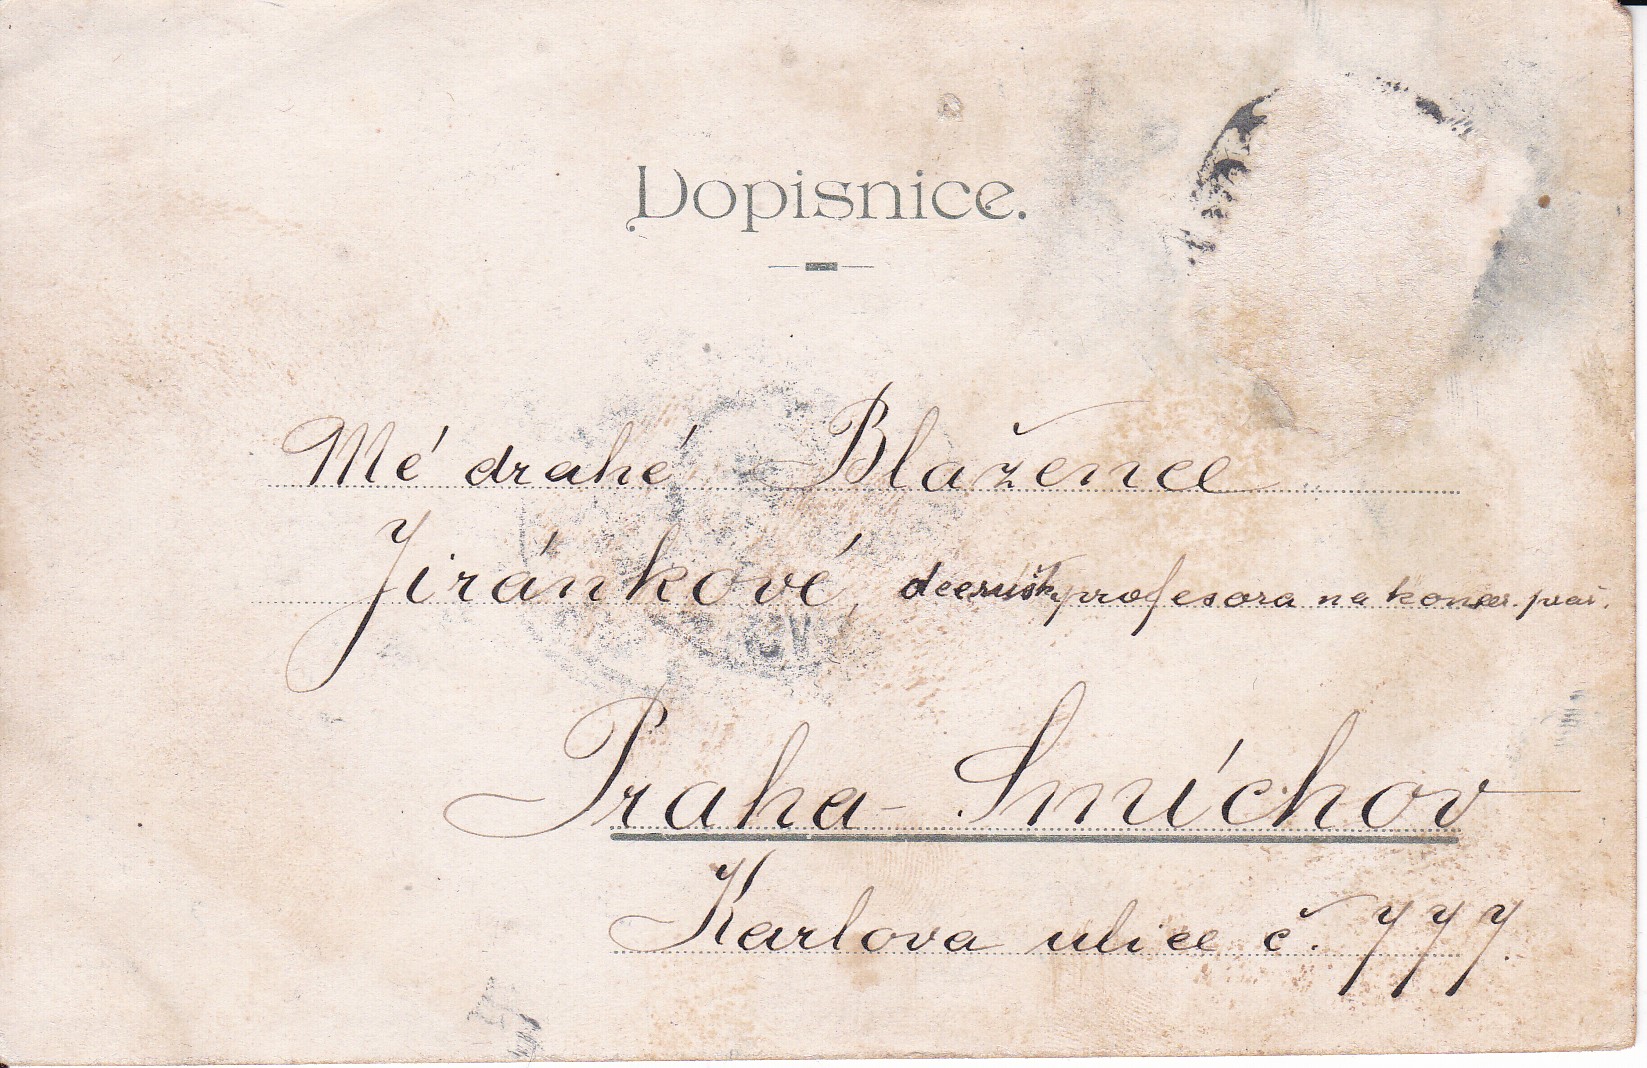 Dopisnice.
Mé drahé Blažence
Jiránkové, dcerušky profesora na konser. praž.
Praha - Smíchov
Karlova ulice č. 777.